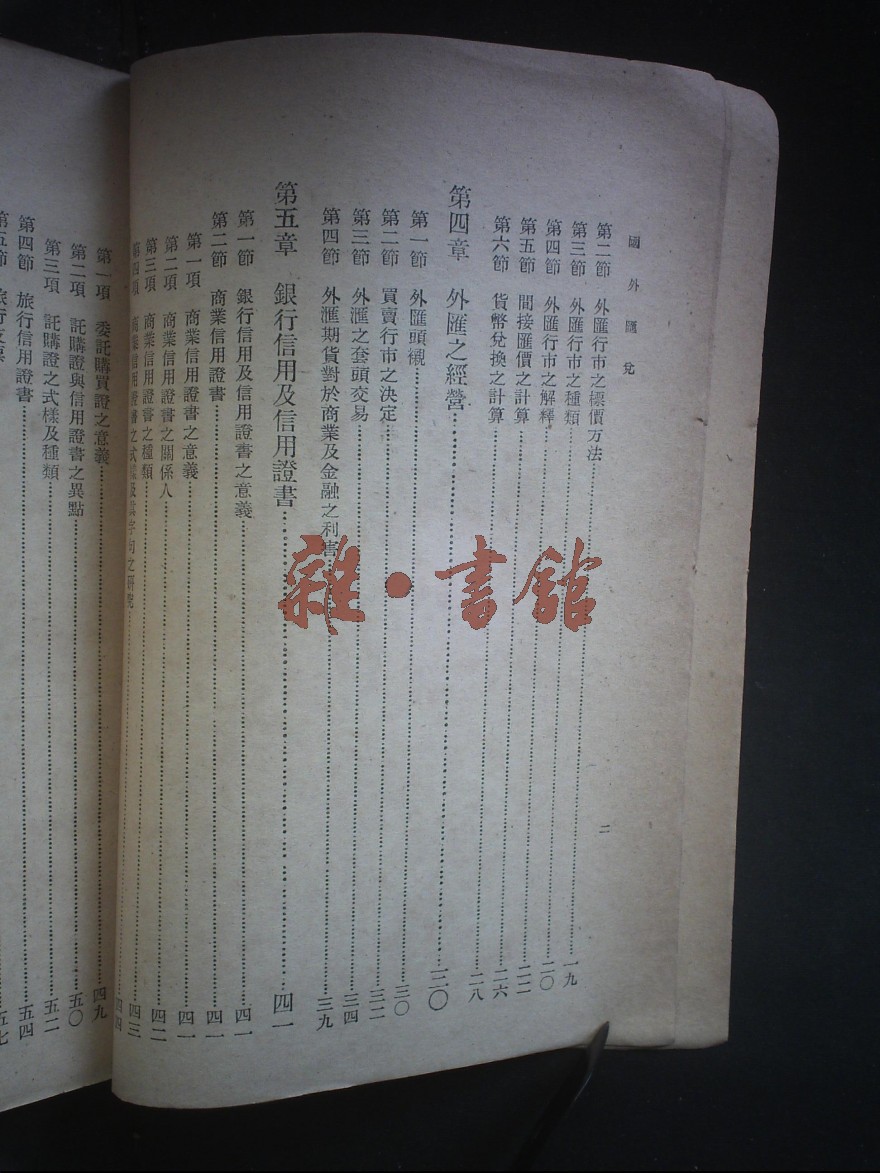 國外匯兌
二
第二節 外匯行市之標價方法……一九
第三節 外匯行市之種類……二〇
第四節 外匯行市之解釋……二二
第五節 間接匯價之計算……二六
第六節 貨幣兌換之計算……二八
第四章 外匯之經營……三〇
第一節 外匯頭襯……三〇
第二節 買賣行市之決定……三二
第三節 外滙之套頭交易……三四
第四節 外滙期貨對於商業及金融之利害……三九
第五章 銀行信用及信用證書……四一
第一節 銀行信用及信用證書之意義……四一
第二節 商業信用證書……四一
第一項 商業信用證書之意義……四一
第二項 商業信用證書之關係人……四二
第三項 商業信用證書之種類……四三
第四項 商業信用證書之式樣及其字句之研究……四四
第一項 委託購買證之意義……四九
第二項 託購證與信用證書之異點……五〇
第三項 託購證之式樣及種類……五二
第四節 旅行信用證書……五四
第五節 旅行支票……五七
雜·書館